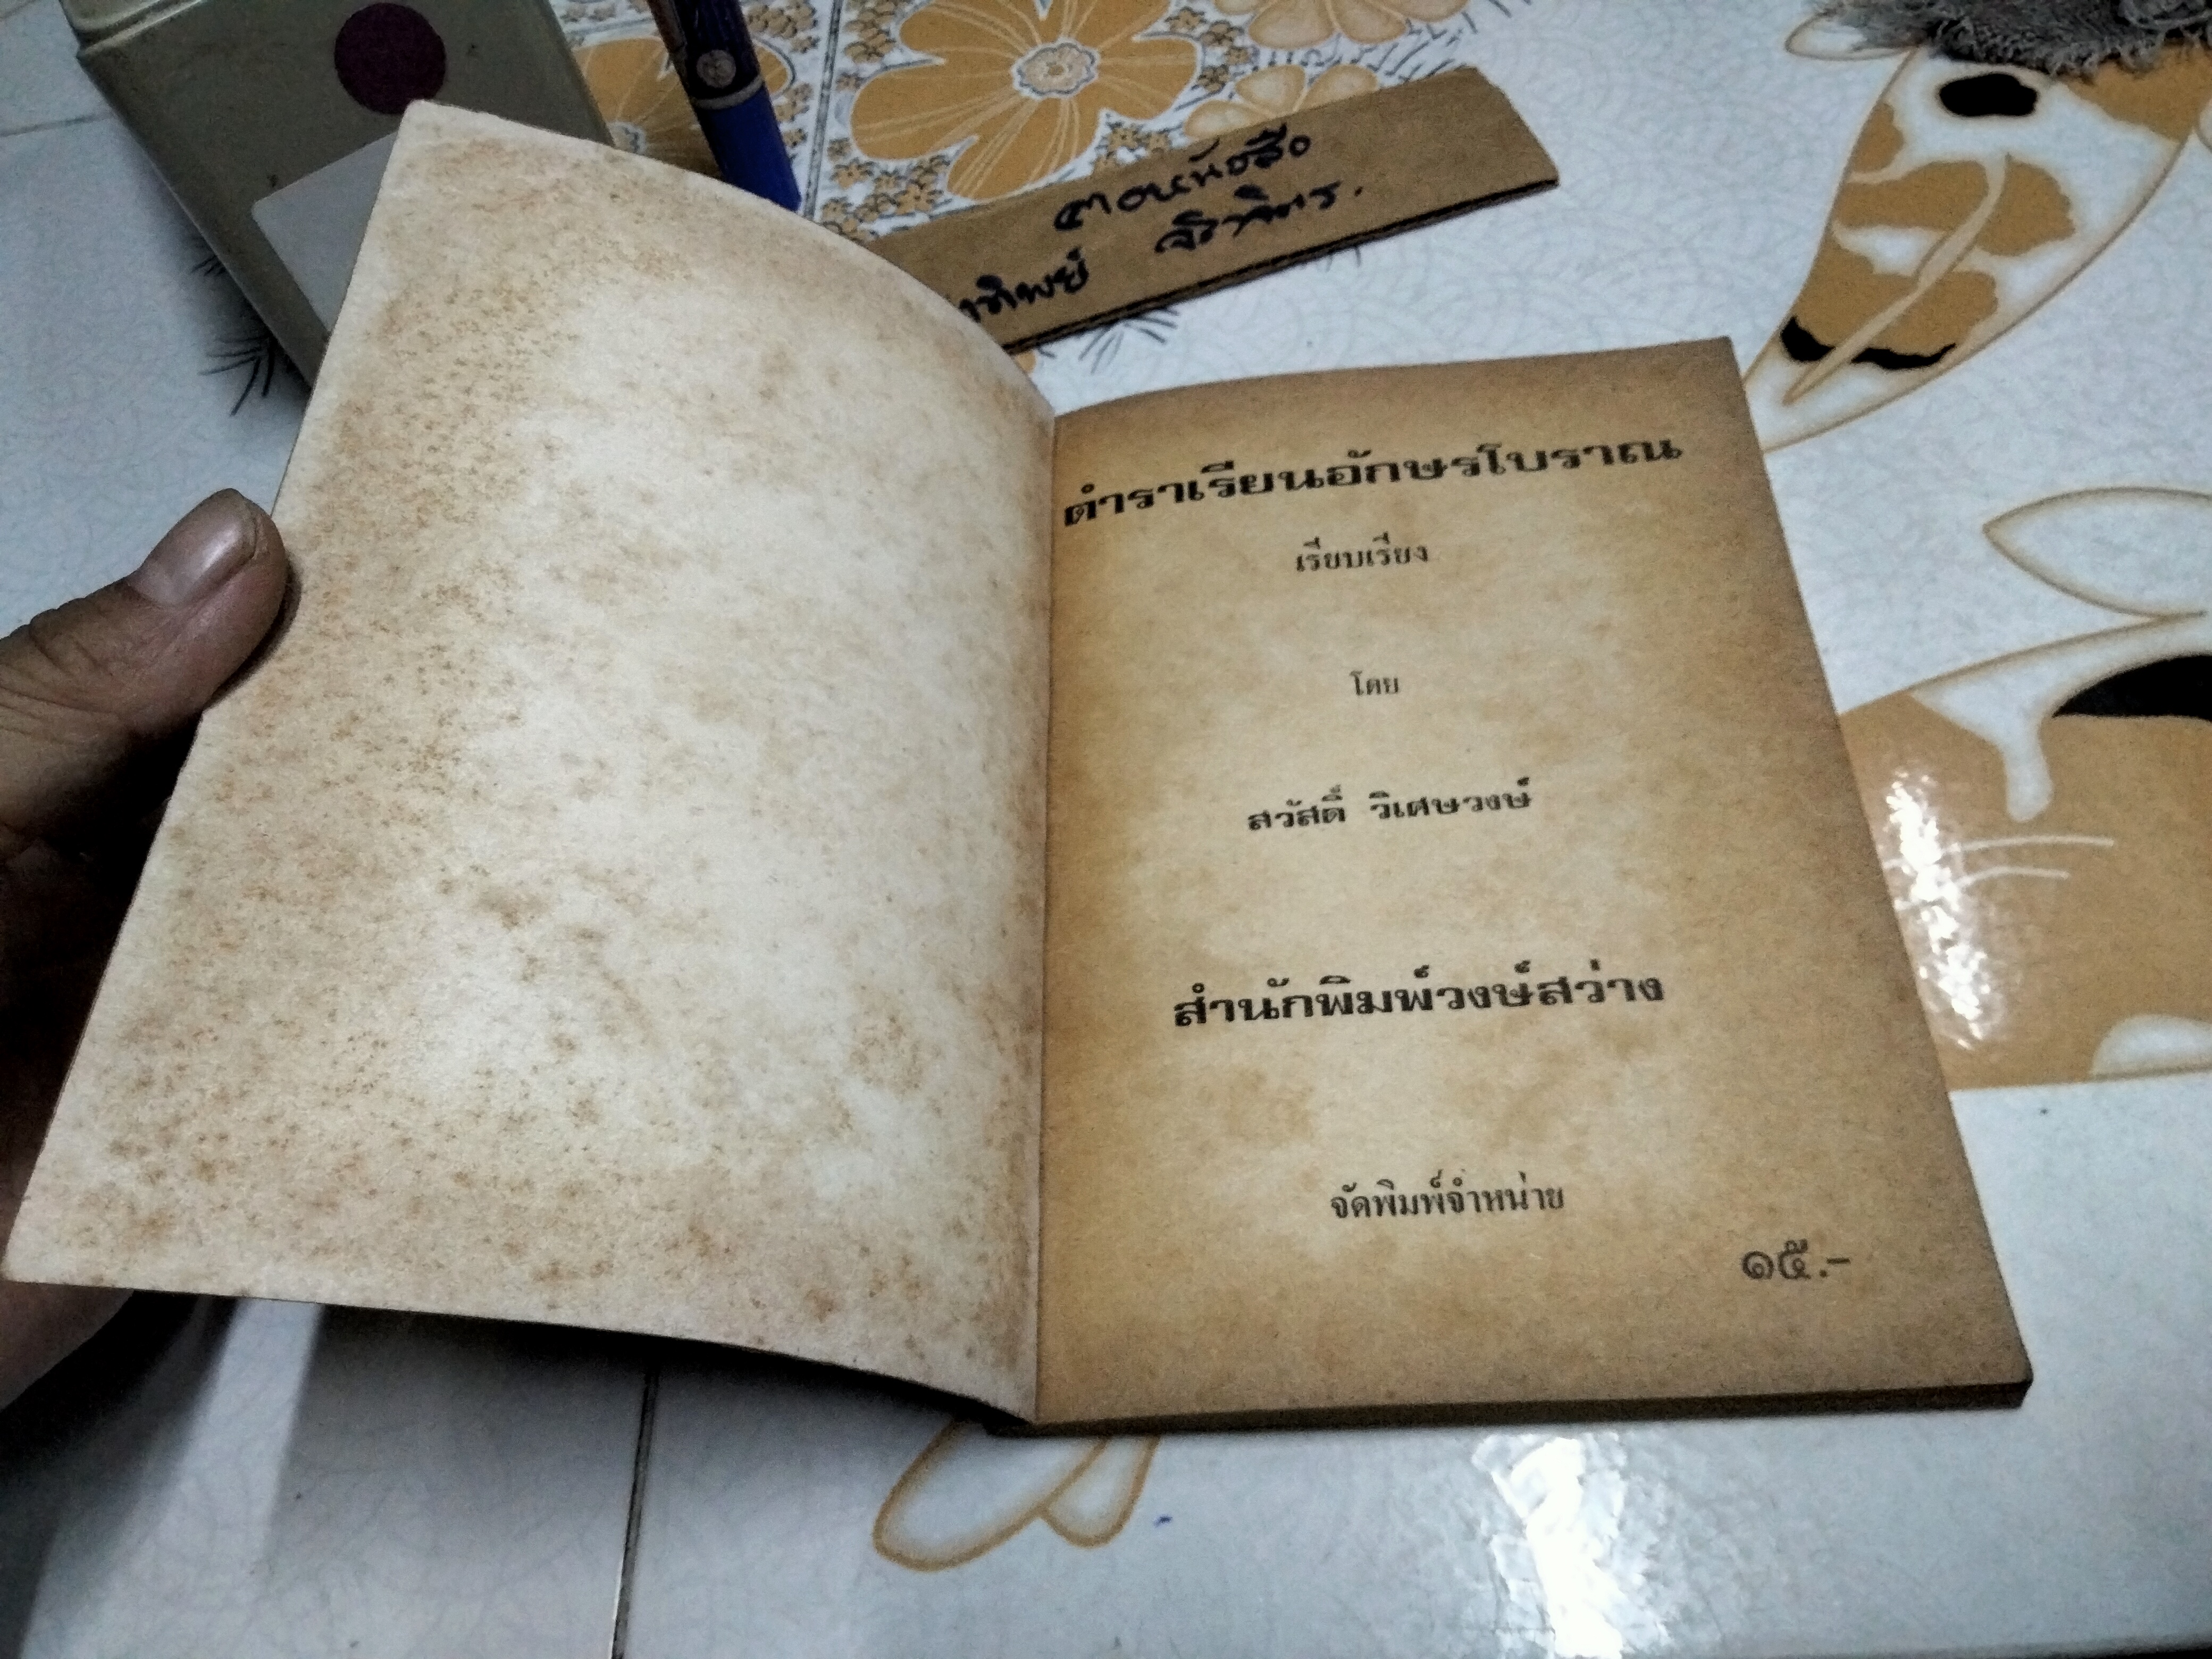 ตำราเรียนอักษรโบราณ
เรียบเรียง
โดย
สวัสดิ์ วิเศษวงษ์
สำนักพิมพ์วงษ์สว่าง
จัดพิมพ์จำหน่าย
๑๕.-
หนังสือ
ทิพย์ จิราจิตร.